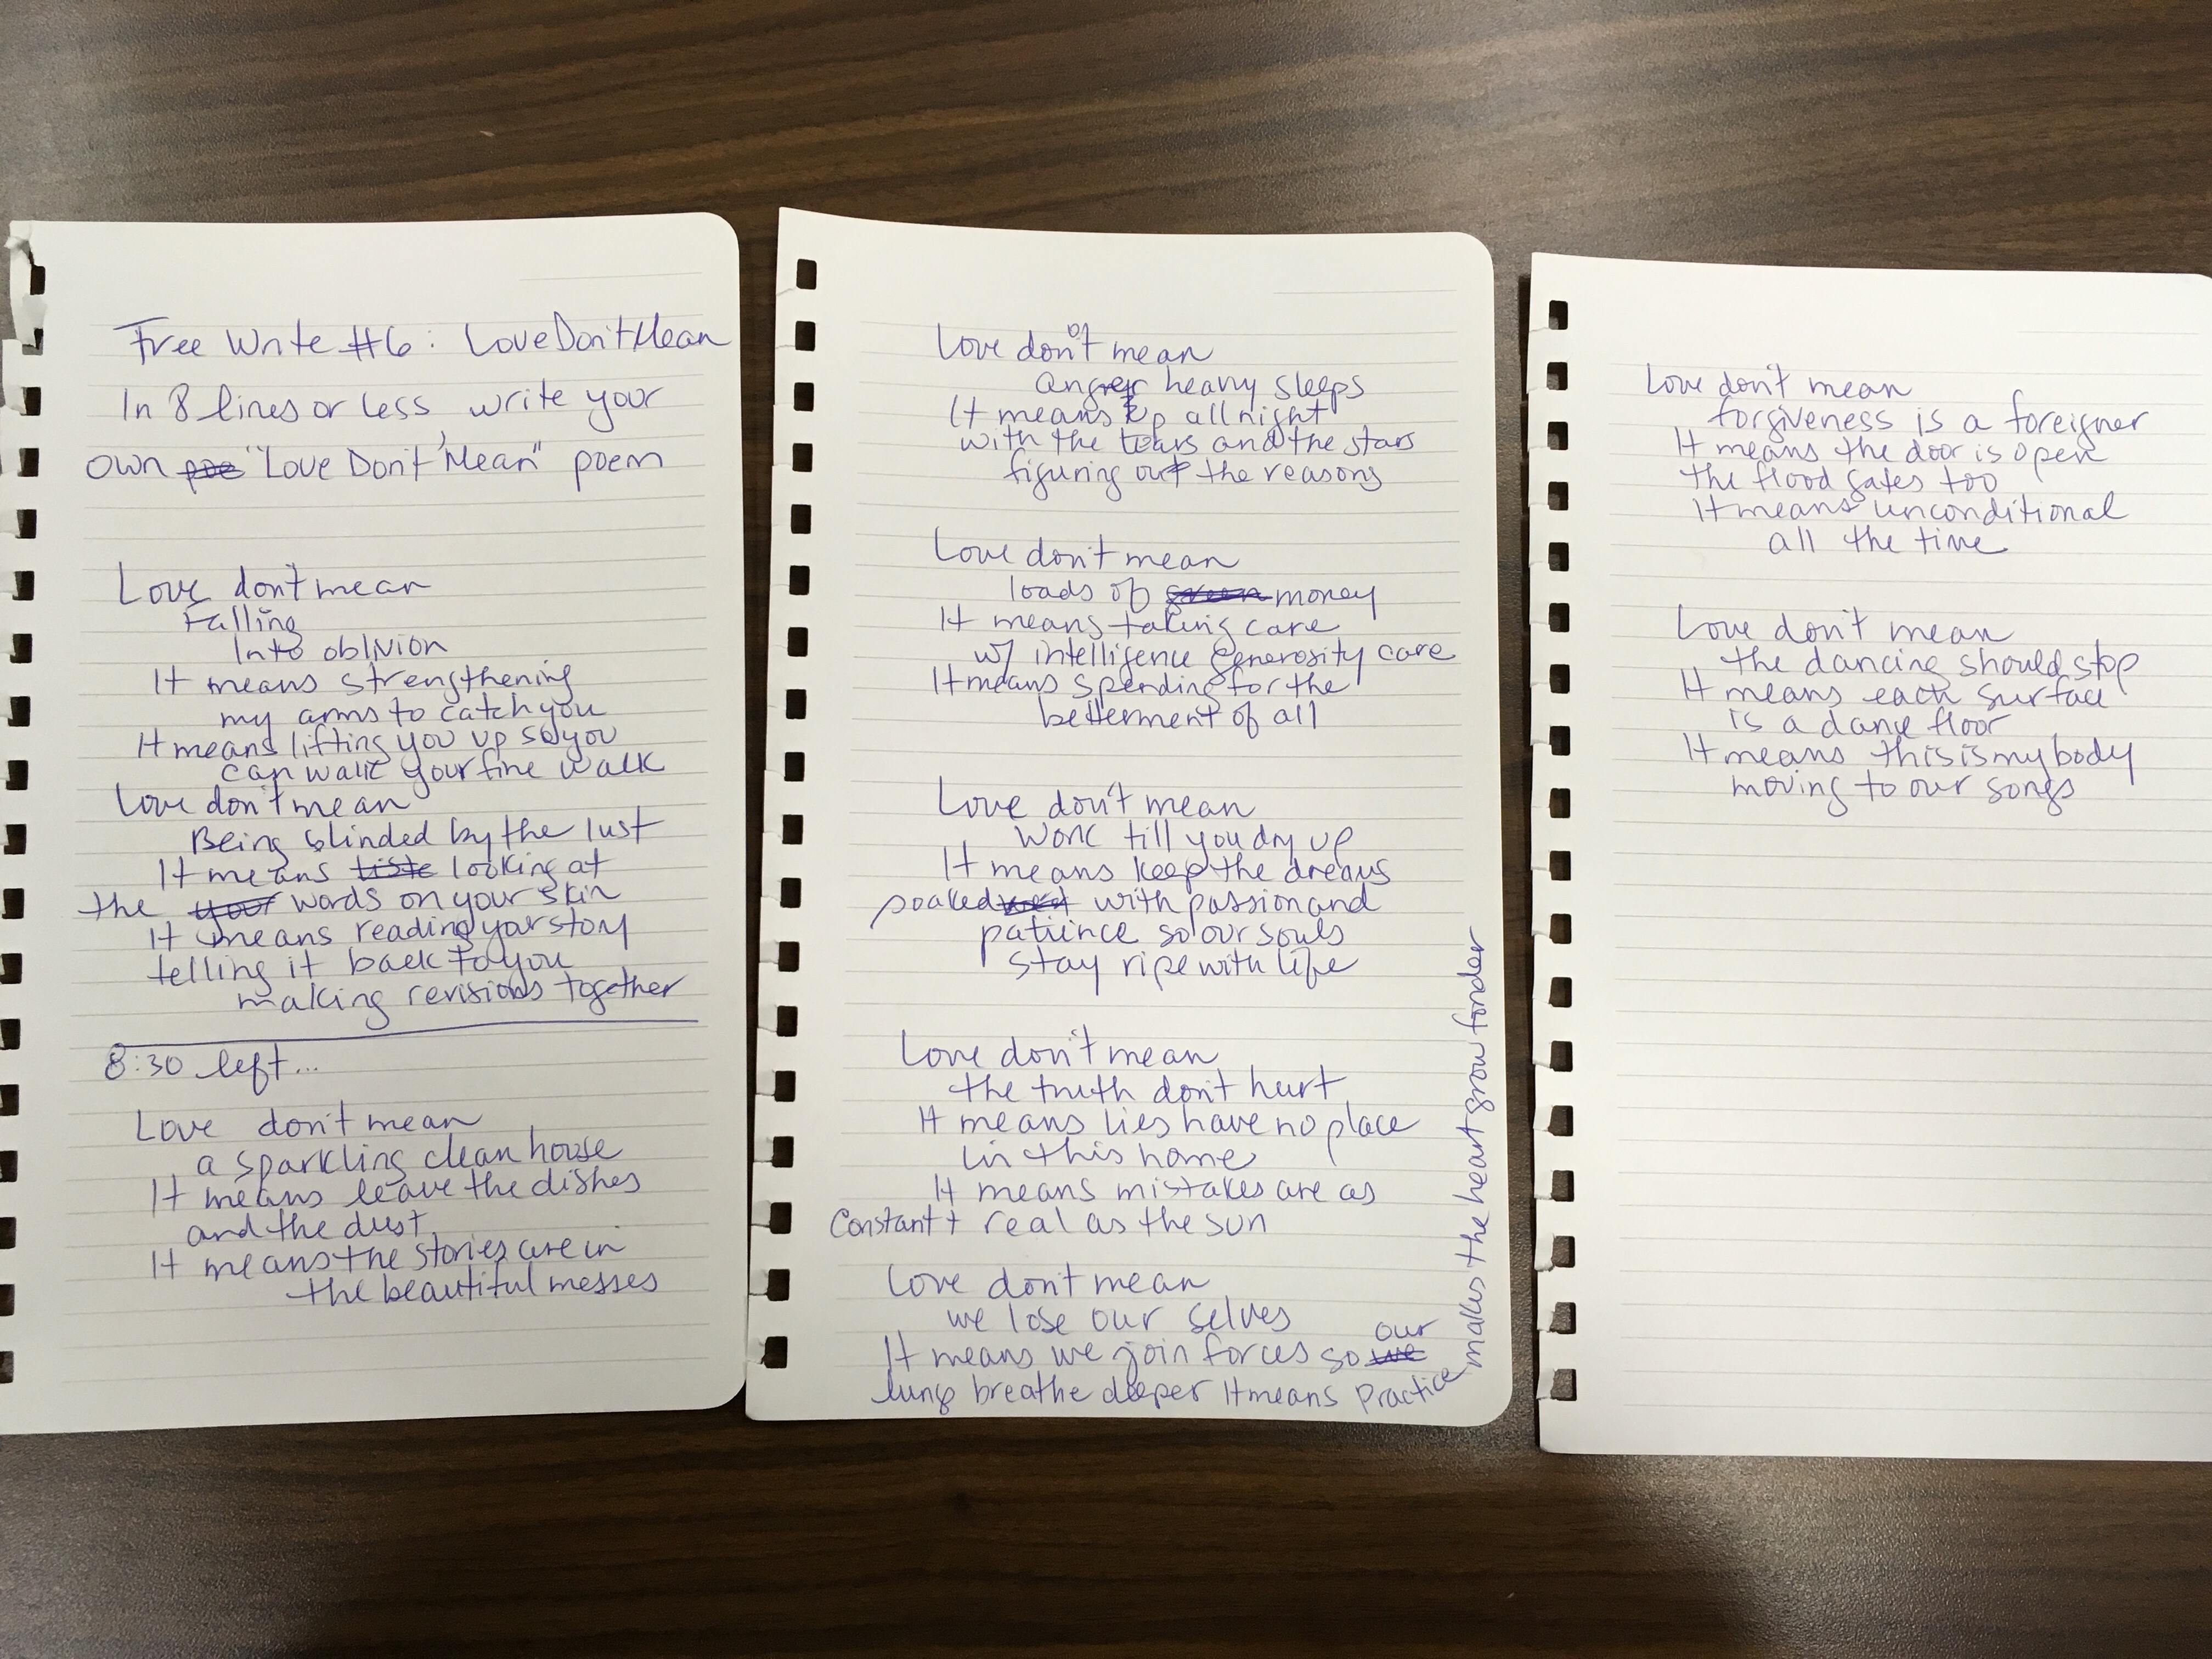 Free Write #6: Love Don't Mean
In 8 lines or less, write your
own poe "Love Don't Mean" poem
Love don't mean
Falling
Into oblivion
It means strengthening
my arms to catch you
It means lifting you up so you
can walk your fine walk
Love don't mean
Being blinded by the lust
It means liste looking at
the your words on your skin
It means reading your story
telling it back to you
making revisions together
8:30 left...
Love don't mean
a sparkling clean house
It means leave the dishes
and the dust
It means the stories are in
the beautiful messes
Love don't mean
anger heavy sleeps
It means up all night
with the tears and the stars
figuring out the reasons
Love don't mean
loads of green money
It means taking care
w/ intelligence generosity care
It means spending for the
betterment of all
Love don't mean
work till you dry up
It means keep the dreams
soaked with passion and
patience so our souls
stay ripe with life
Love don't mean
the truth don't hurt
It means lies have no place
in this home
It means mistakes are as
constant + real as the sun
Love don't mean
we lose our selves
our
It means we join forces so we
lungs breathe deeper It means Practice
makes the heart grow fonder
Love don't mean
forgiveness is a foreigner
It means the door is open
the flood gates too
It means unconditional
all the time
Love don't mean
the dancing should stop
It means each surface
is a dance floor
It means this is my body
moving to our songs